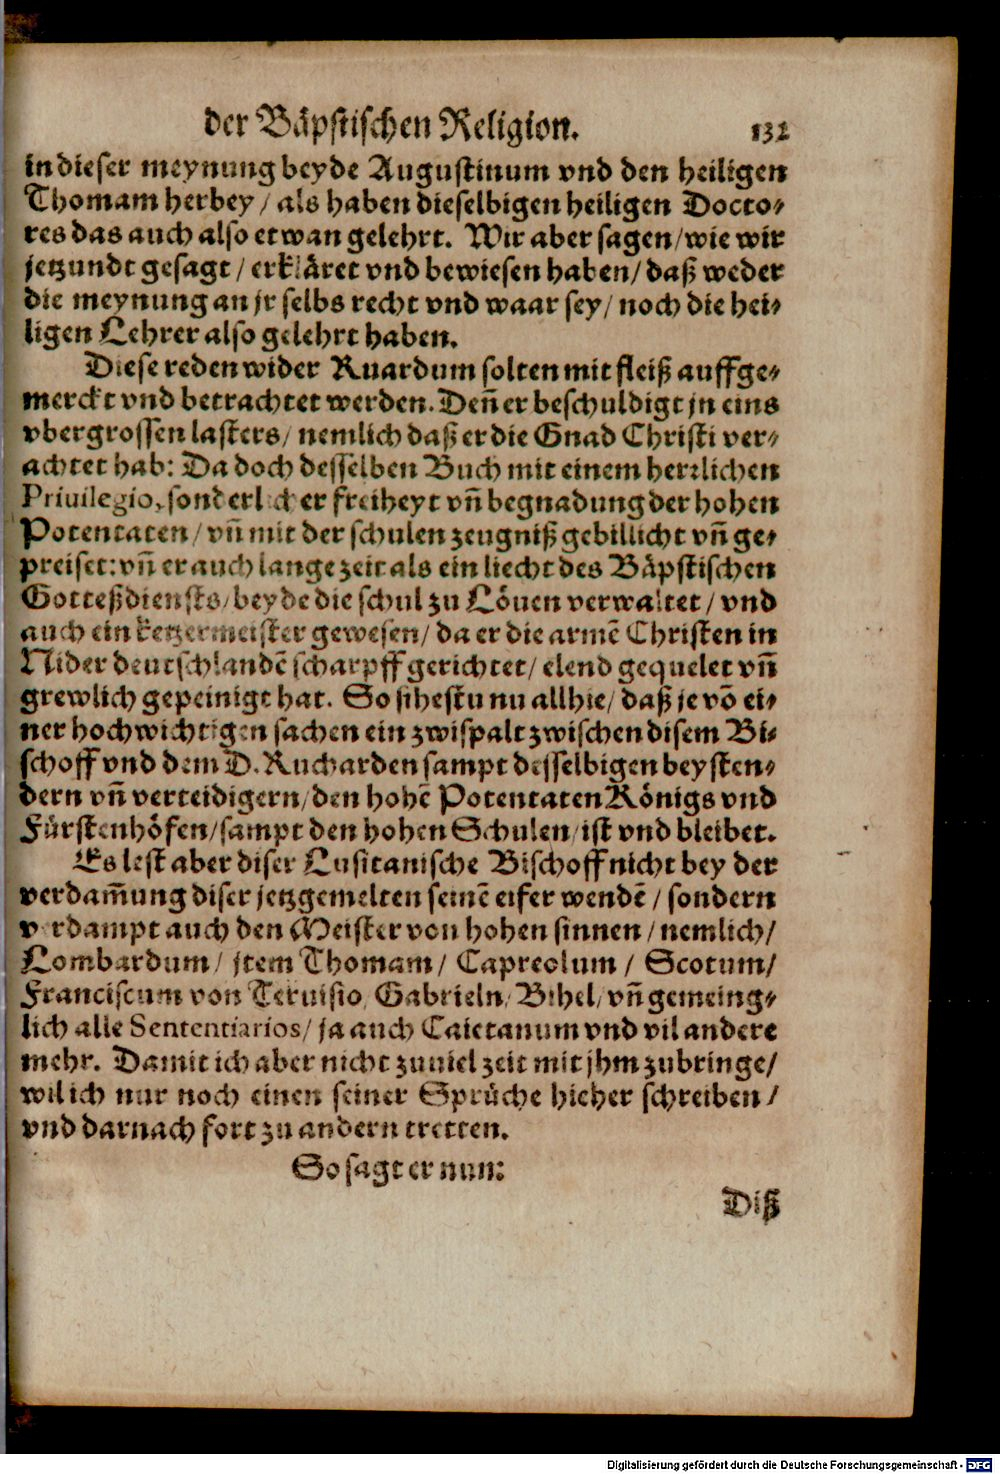 der Bäpstischen Religion. 132
in dieser meynung beyde Augustinum vnd den heiligen
Thomam herbey / als haben dieselbigen heiligen Docto-
res das auch also etwan gelehrt. Wir aber sagen / wie wir
jetzundt gesagt / erkläret vnd bewiesen haben / daß weder
die meynung an jr selbs recht vnd waar sey / noch die hei-
ligen Lehrer also gelehrt haben.
Diese reden wider Ruardum solten mit fleiß auffge-
merckt vnd betrachtet werden. Deñ er beschuldigt jn eins
vbergrossen lasters / nemlich daß er die Gnad Christi ver-
achtet hab: Da doch desselben Buch mit einem herrlichen
Priuilegio, sonderlicher freiheyt vñ begnadung der hohen
Potentaten / vñ mit der schulen zeugniß gebillicht vñ ge-
preiset: vñ er auch lange zeit als ein liecht des Bäpstischen
Gotteßdiensts / beyde die schul zu Löuen verwaltet / vnd
auch ein ketzermeister gewesen / da er die armē Christen in
Nider deutschlandē scharpff gerichtet / elend gequelet vñ
grewlich gepeinigt hat. So sihestu nu allhie / daß je vō ei-
ner hochwichtigen sachen ein zwispalt zwischen disem Bi-
schoff vnd dem D. Rucharden sampt desselbigen beysten-
dern vñ verteidigern / den hohē Potentaten Königs vnd
Fürstenhöfen / sampt den hohen Schulen / ist vnd bleibet.
Es lest aber diser Lusitanische Bischoff nicht bey der
verdam̃ung diser jetzgemelten seinē eifer wendē / sondern
verdampt auch den Meister von hohen sinnen / nemlich /
Lombardum / jtem Thomam / Capreolum / Scotum /
Franciscum von Teruisio, Gabrieln / Bihel / vñ gemeing-
lich alle Sententiarios / ja auch Caietanum vnd vil andere
mehr. Damit ich aber nicht zuuiel zeit mit jhm zubringe /
wil ich nur noch einen seiner Sprüche hieher schreiben /
vnd darnach fort zu andern tretten.
So sagt er nun:
Diß
Digitalisierung gefördert durch die Deutsche Forschungsgemeinschaft - DFG